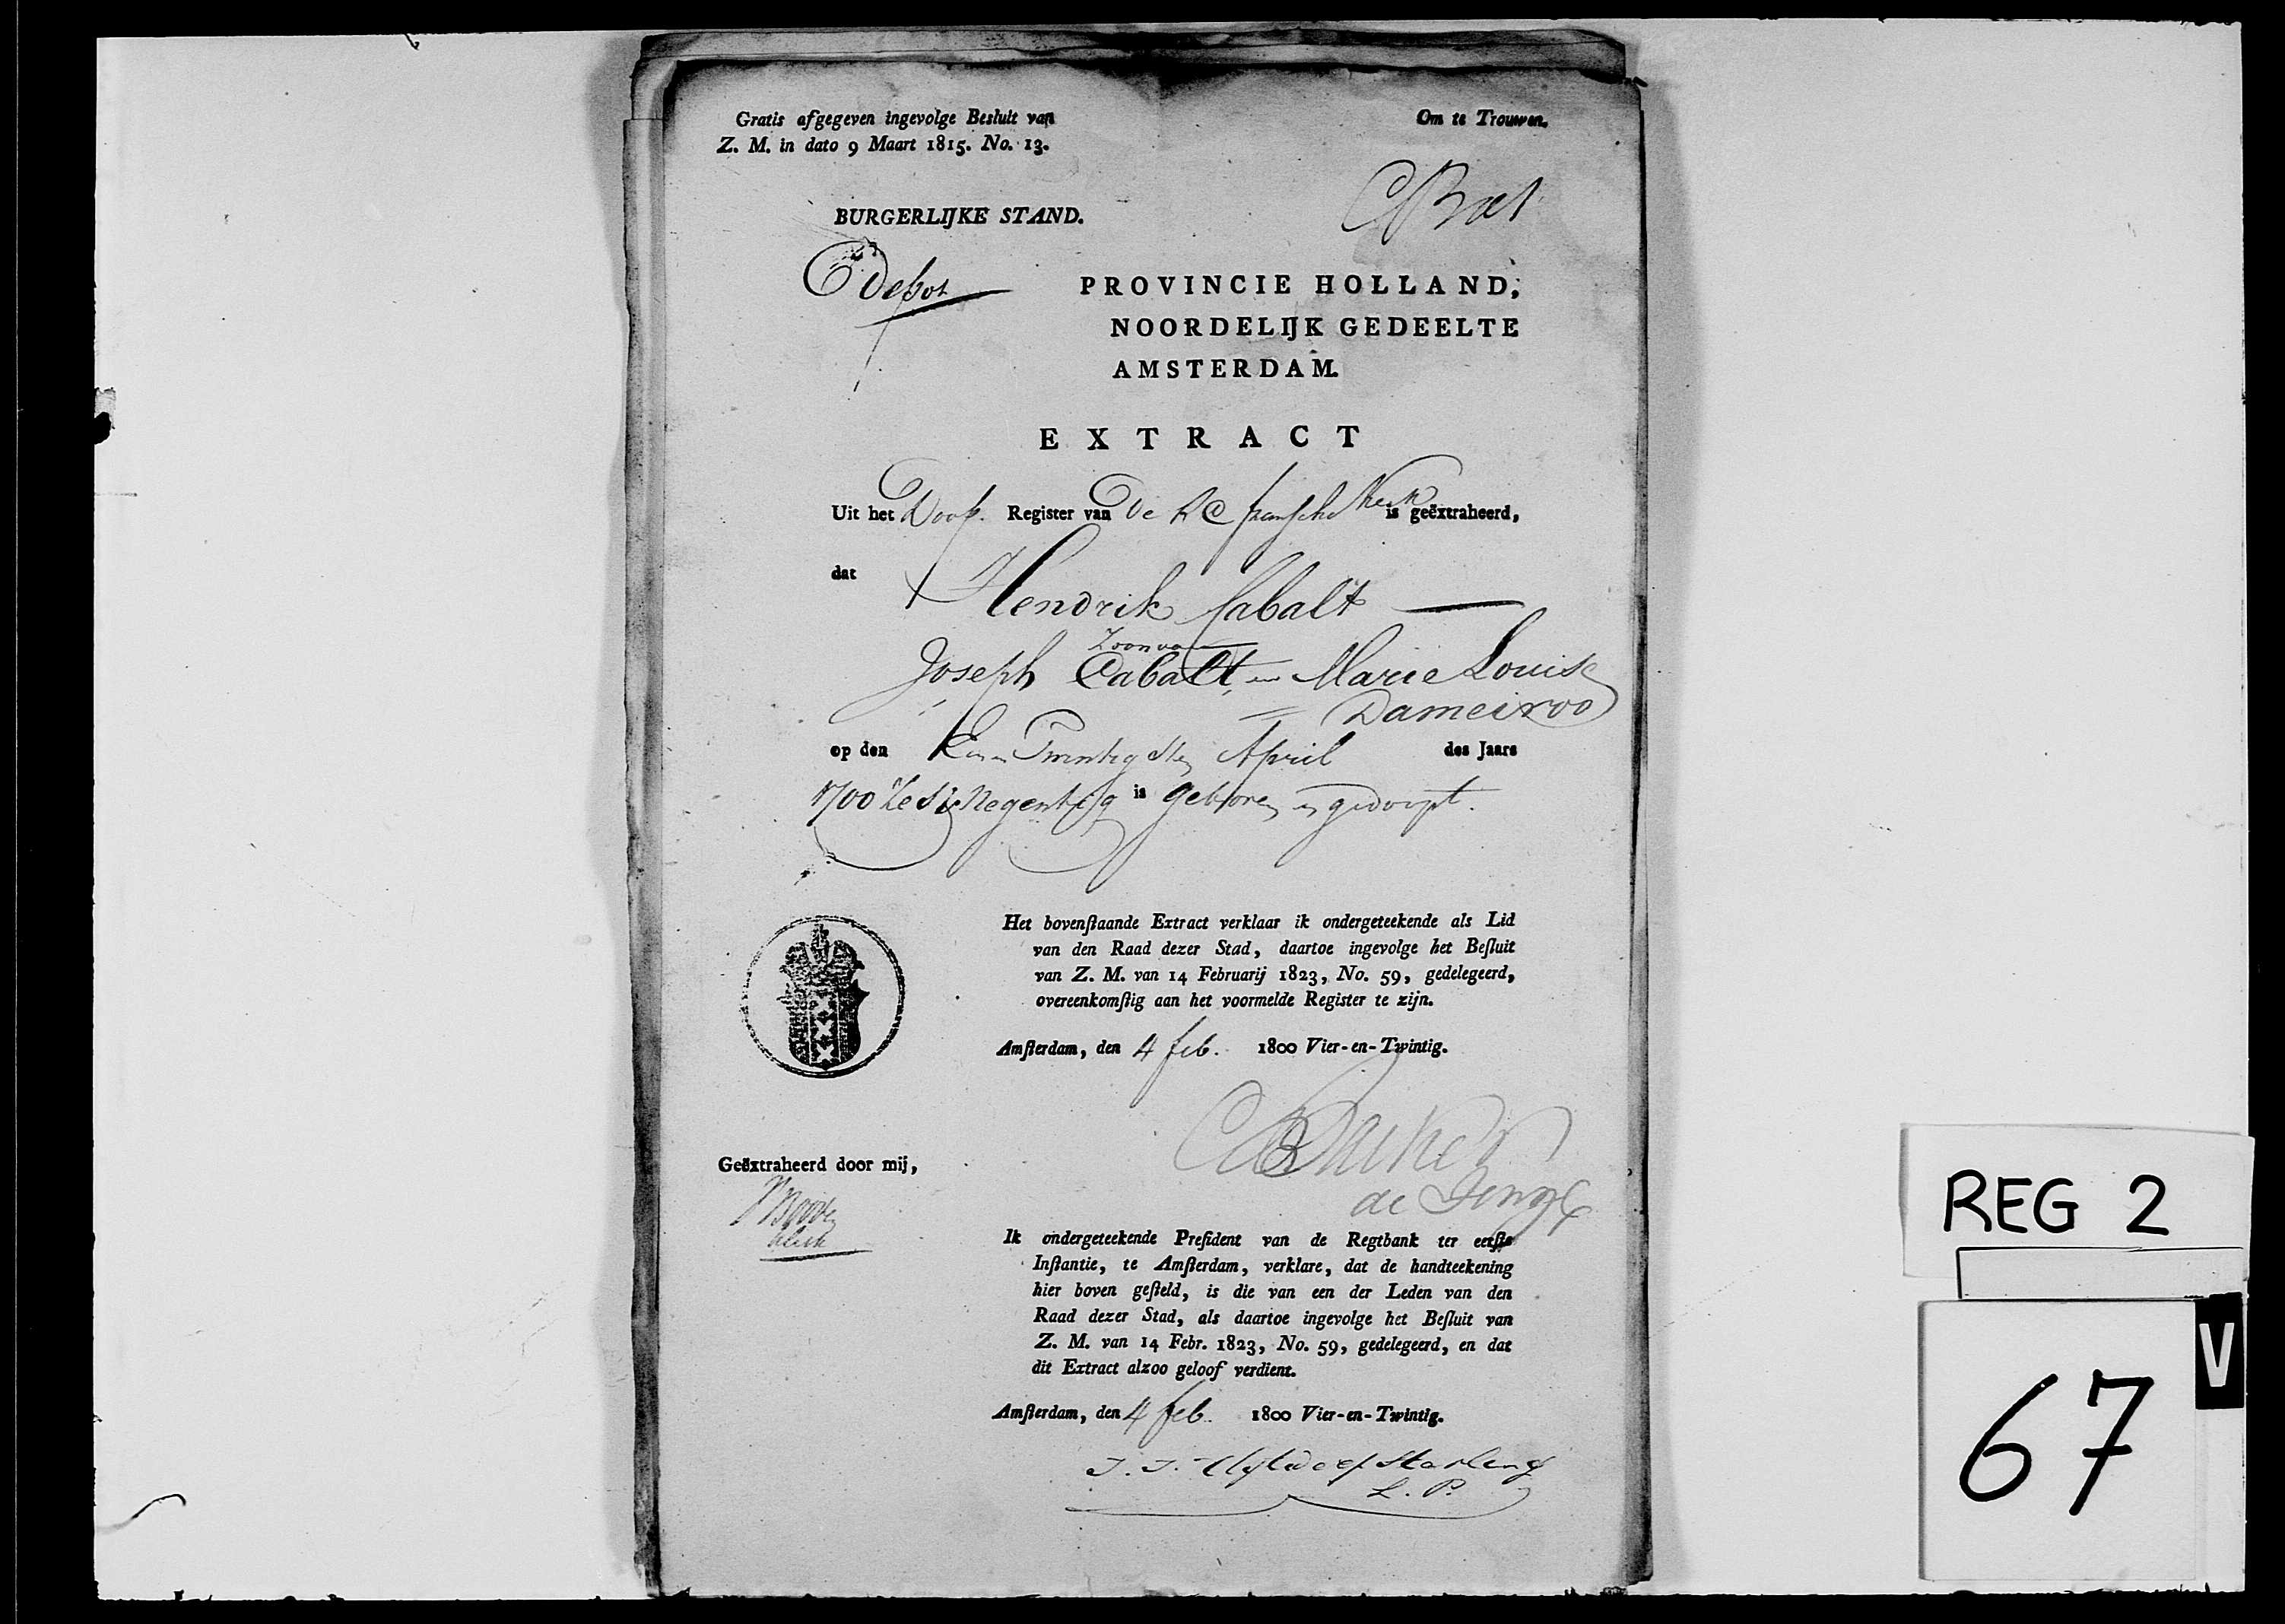 Gratis afgegeven ingevolge Besluit van
Z. M. in dato 9 Maart 1815. No. 13.
Om te Trouwen.
BURGERLIJKE STAND.
Depot
PROVINCIE HOLLAND,
NOORDELIJK GEDEELTE
AMSTERDAM.
EXTRACT
Uit het Doop. Register van De RC fransche Kerk is geëxtraheerd,
dat Hendrik Cabalt
Zoon van
Joseph Cabalt, en Marie Louise
Dameiroo
op den Een en Twintigsten April des Jaars
1700 Zes en Negentig is geboren en gedoopt.
Het bovenstaande Extract verklaar ik ondergeteekende als Lid
van den Raad dezer Stad, daartoe ingevolge het Besluit
van Z. M. van 14 Februarij 1823, No. 59, gedelegeerd,
overeenkomstig aan het voormelde Register te zijn.
Amsterdam, den 4 feb. 1800 Vier-en-Twintig.
Geëxtraheerd door mij,
de
Ik ondergeteekende President van de Regtbank ter eerste
Instantie, te Amsterdam, verklare, dat de handteekening
hier boven gesteld, is die van een der Leden van den
Raad dezer Stad, als daartoe ingevolge het Besluit van
Z. M. van 14 Febr. 1823, No. 59, gedelegeerd, en dat
dit Extract alzoo geloof verdient.
Amsterdam, den 4 feb. 1800 Vier-en-Twintig.
L. P.
REG 2
V
67